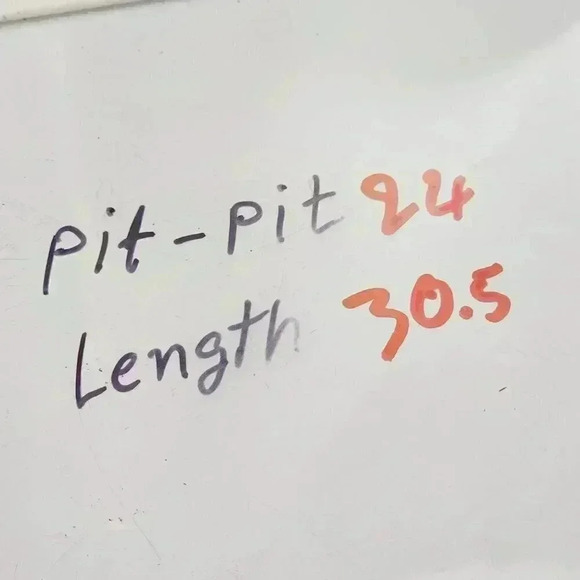 Pit-Pit 24
Length 30.5